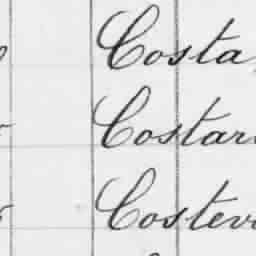 Costa
Costar
Costev